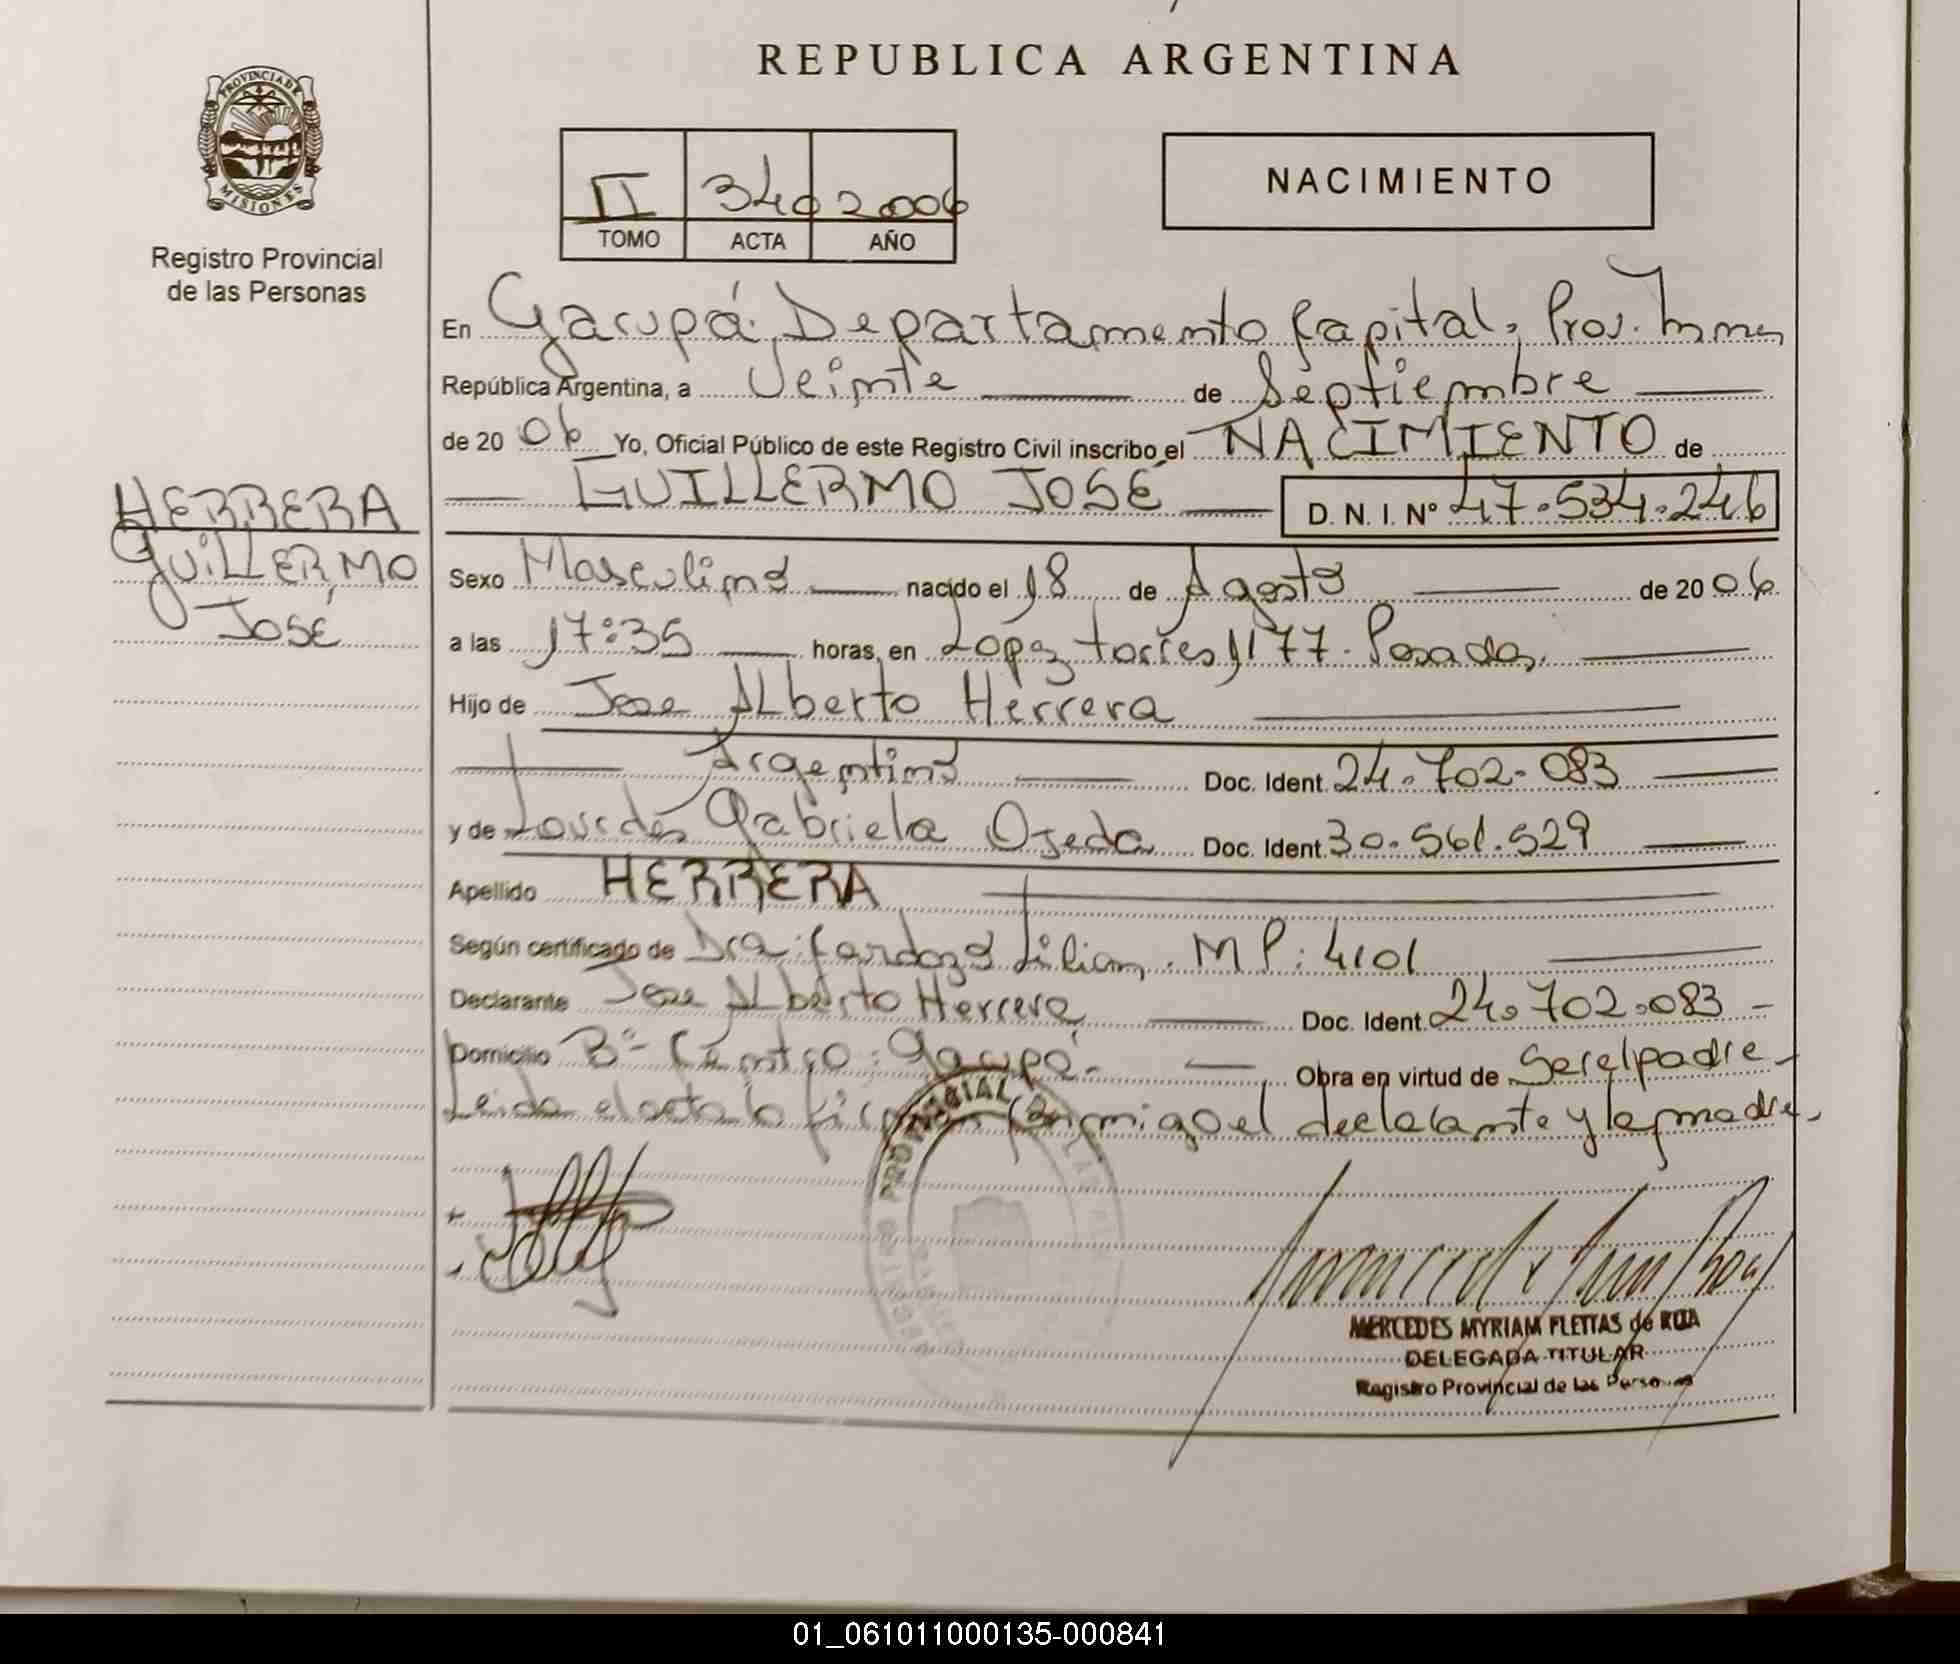 REPUBLICA ARGENTINA
PROVINCIA DE
MISIONES
Registro Provincial
de las Personas
II 340 2006
TOMO ACTA AÑO
NACIMIENTO
En Garupá. Departamento Capital, Prov.
República Argentina, a Veinte de Septiembre
de 20 06 Yo, Oficial Público de este Registro Civil inscribo el NACIMIENTO de
GUILLERMO JOSÉ D. N. I. Nº 47.534.246
HERRERA
GUILLERMO
JOSÉ
Sexo Masculino nacido el 18 de Agosto de 20 06
a las 17:35 horas, en Lopez torres 1177. Posadas.
Hijo de Jose Alberto Herrera
Argentino Doc. Ident. 24.702.083
y de Lourdes Gabriela Ojeda Doc. Ident. 30.561.529
Apellido HERRERA
Según certificado de Dra. Cardozo Lilian. MP: 4101
Declarante Jose Alberto Herrera Doc. Ident. 24.702.083
Domicilio Bº Centro. Garupá. Obra en virtud de Ser el padre
Leida el acta la firman Conmigo el declarante y la madre.
PROVINCIAL
MERCEDES MYRIAM PLETTAS de ROA
DELEGADA TITULAR
Registro Provincial de las Personas
01_061011000135-000841